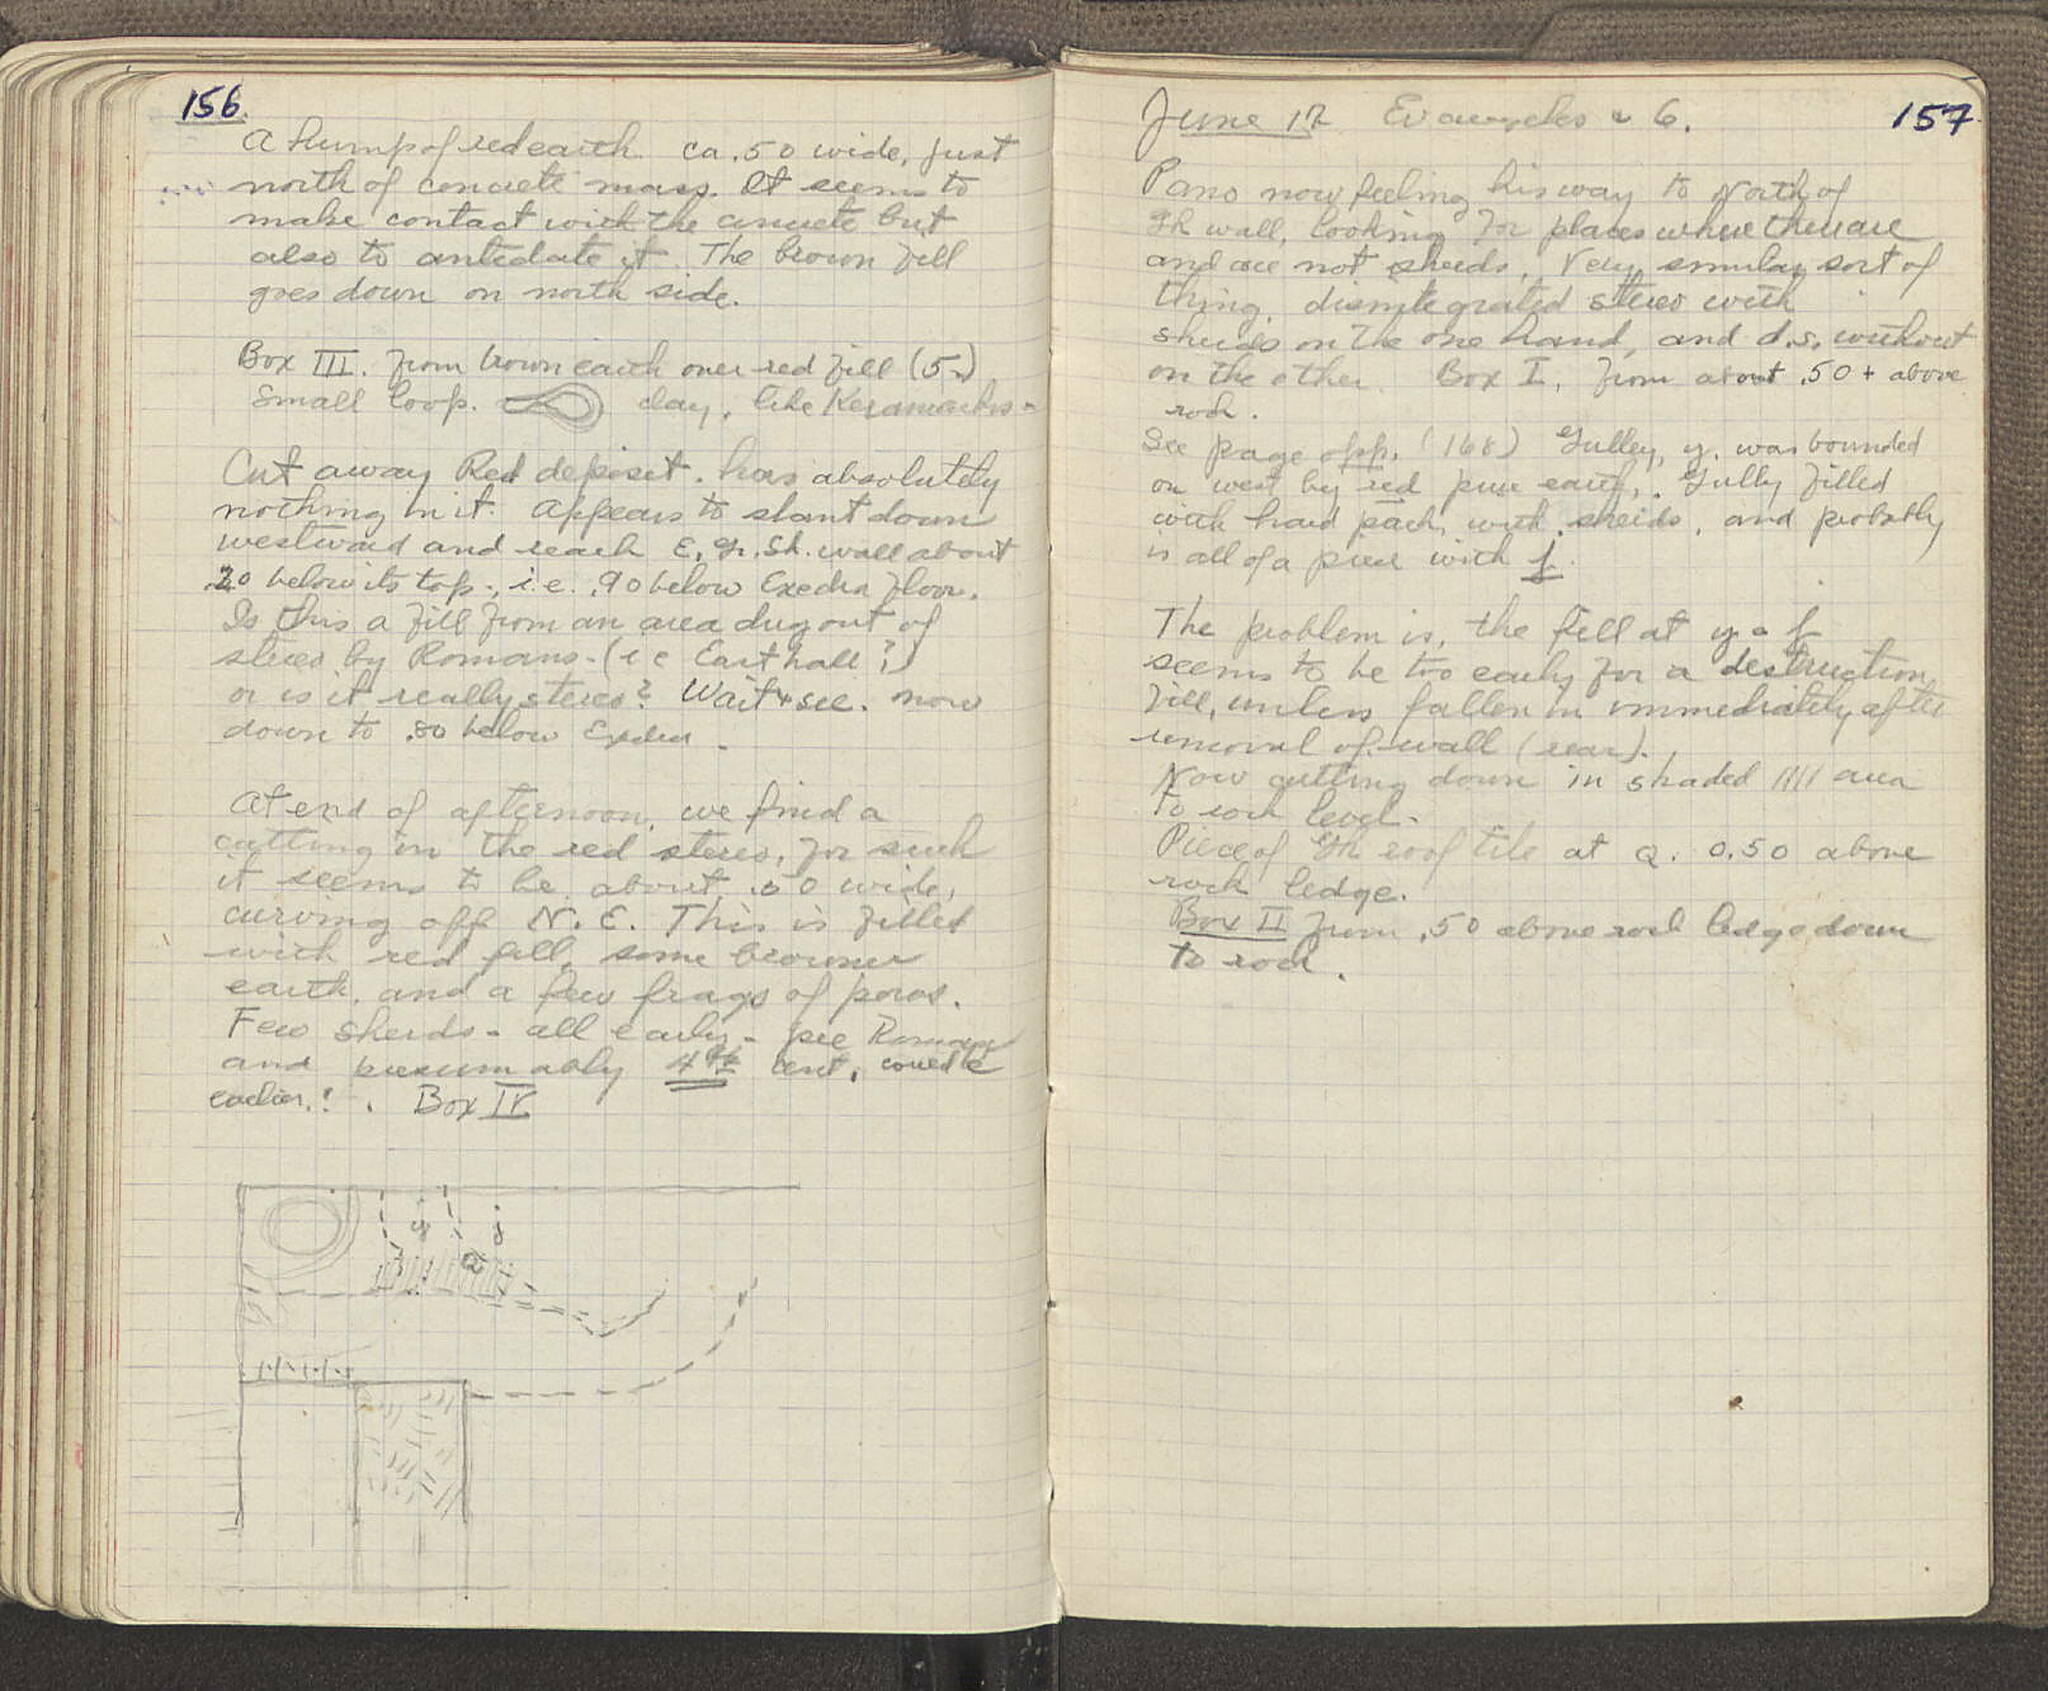 156.
A hump of red earth ca .50 wide, just
north of concrete mass. It seems to
make contact with the concrete but
also to antedate it. The brown fill
goes down on north side.
Box III. From brown earth over red fill (5-)
Small loop. clay, like
Cut away Red deposit. has absolutely
nothing in it. Appears to slant down
westward and reach E. Gr. St. wall about
20 below its top, i.e. .90 below Exedra floor.
Is this a fill from an area dug out of
stereo by Romans - (i e East hall?)
or is it really stereo? Wait + see. now
down to .80 below Exedra -
At end of afternoon, we find a
cutting in the red stereo, for such
it seems to be, about .50 wide,
curving off N.E. This is filled
with red fill, some browner
earth, and a few frags of poros.
Few sherds - all early - pre Roman
and presumably 4th cent, could be
earlier.! . Box IV
y
f
a
157
June 12 & 6.
Pano now feeling his way to North of
Gk wall, looking for places where there are
and are not sherds. Very similar sort of
thing, disintegrated stereo with
sherds on the one hand, and d.s. without
on the other. Box I, from about .50+ above
rock.
See page opp. (168) Gulley, y. was bounded
on west by red pure earth. Gully filled
with hard pack, with sherds, and probably
is all of a piece with f.
The problem is, the fill at y - f
seems to be too early for a destruction
fill, unless fallen in immediately after
removal of wall (rear).
Now cutting down in shaded //// area
to rock level.
Piece of Gk roof tile at a. 0.50 above
rock ledge.
Box II from .50 above rock ledge down
to rock.